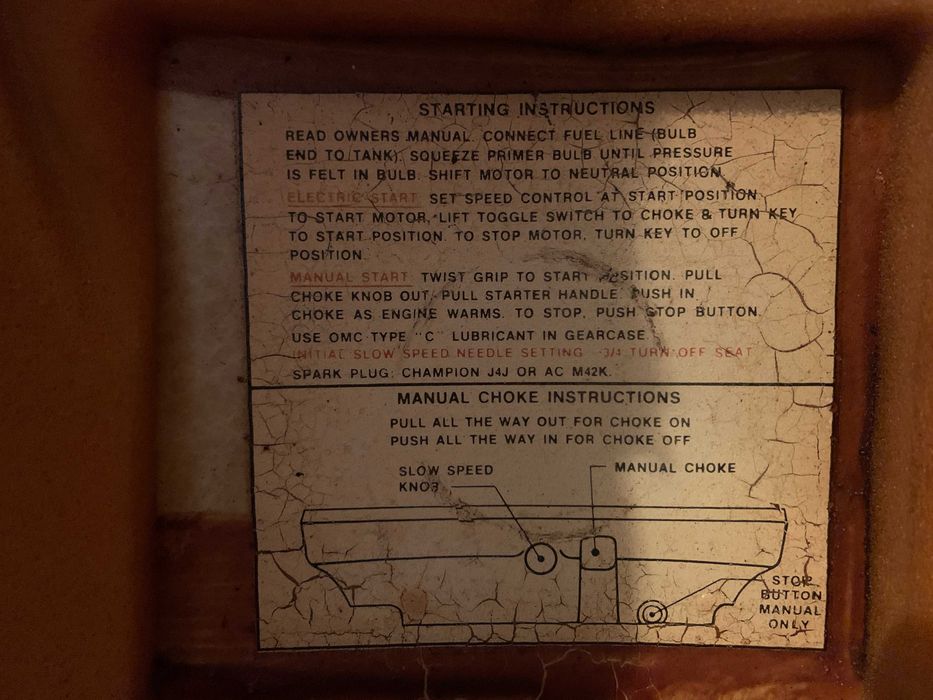 STARTING INSTRUCTIONS
READ OWNERS MANUAL. CONNECT FUEL LINE (BULB
END TO TANK). SQUEEZE PRIMER BULB UNTIL PRESSURE
IS FELT IN BULB. SHIFT MOTOR TO NEUTRAL POSITION.
ELECTRIC START SET SPEED CONTROL AT START POSITION.
TO START MOTOR, LIFT TOGGLE SWITCH TO CHOKE & TURN KEY
TO START POSITION. TO STOP MOTOR, TURN KEY TO OFF
POSITION.
MANUAL START TWIST GRIP TO START POSITION. PULL
CHOKE KNOB OUT. PULL STARTER HANDLE. PUSH IN
CHOKE AS ENGINE WARMS. TO STOP, PUSH STOP BUTTON.
USE OMC TYPE "C" LUBRICANT IN GEARCASE.
INITIAL SLOW SPEED NEEDLE SETTING - 3/4 TURN OFF SEAT
SPARK PLUG: CHAMPION J4J OR AC M42K.
MANUAL CHOKE INSTRUCTIONS
PULL ALL THE WAY OUT FOR CHOKE ON
PUSH ALL THE WAY IN FOR CHOKE OFF
SLOW SPEED
KNOB
MANUAL CHOKE
STOP
BUTTON
MANUAL
ONLY